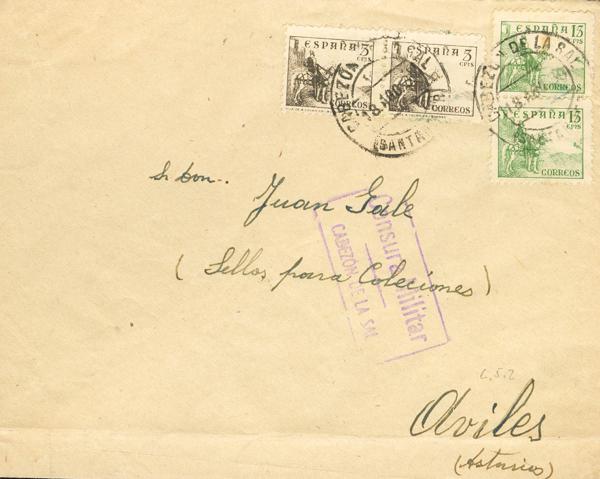 ESPAÑA 5 CTS
CORREOS
ESPAÑA 5 CTS
CORREOS
ESPAÑA 15 CTS
CORREOS
ESPAÑA 15 CTS
CORREOS
CABEZÓN DE LA SAL
Sr don..
Juan Gale
(Sellos para Coleciones)
Censura Militar
CABEZÓN DE LA SAL
Aviles
(Asturias)